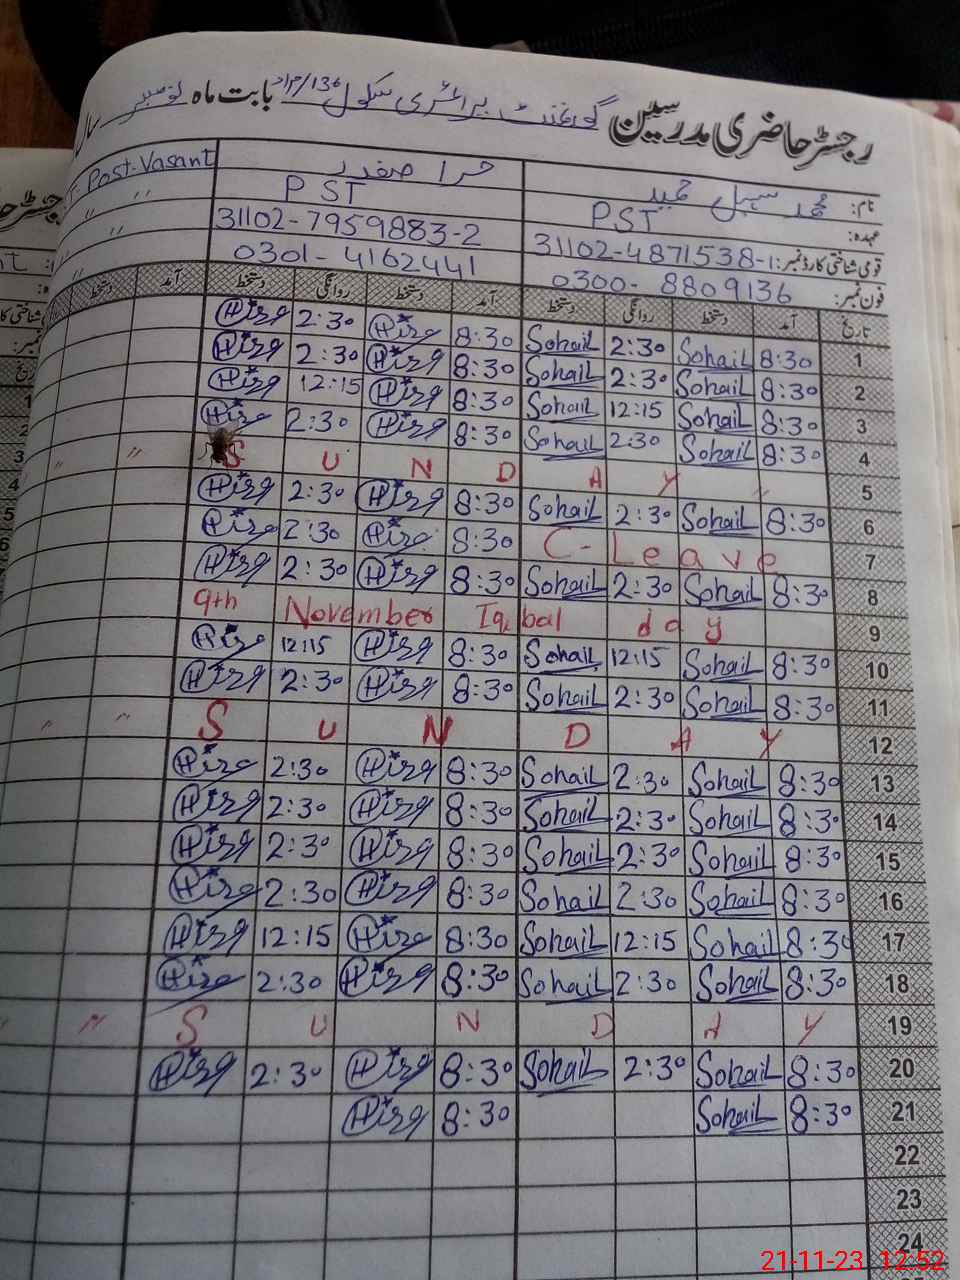 رجسٹر حاضری مدرسین گورنمنٹ پرائمری سکول 136/مراد بابت ماہ نومبر سال
نام: محمد سہیل حمید حرا صفدر Post-Vasant
عہدہ: PST PST " "
قومی شناختی کارڈ نمبر: 31102-4871538-1 31102-7959883-2 " "
فون نمبر: 0300-8809136 0301-4162441 "
تاریخ آمد دستخط روانگی دستخط آمد دستخط روانگی دستخط آمد دستخط
Hira 2:30 Hira 8:30 Sohail 2:30 Sohail 8:30 1
Hira 2:30 Hira 8:30 Sohail 2:30 Sohail 8:30 2
Hira 12:15 Hira 8:30 Sohail 12:15 Sohail 8:30 3
Hira 2:30 Hira 8:30 Sohail 2:30 Sohail 8:30 4
" " S U N D A Y 5
Hira 2:30 Hira 8:30 Sohail 2:30 Sohail 8:30 6
Hira 2:30 Hira 8:30 C-Leave 7
Hira 2:30 Hira 8:30 Sohail 2:30 Sohail 8:30 8
9th November Iqbal day 9
Hira 12:15 Hira 8:30 Sohail 12:15 Sohail 8:30 10
Hira 2:30 Hira 8:30 Sohail 2:30 Sohail 8:30 11
" " S U N D A Y 12
Hira 2:30 Hira 8:30 Sohail 2:30 Sohail 8:30 13
Hira 2:30 Hira 8:30 Sohail 2:30 Sohail 8:30 14
Hira 2:30 Hira 8:30 Sohail 2:30 Sohail 8:30 15
Hira 2:30 Hira 8:30 Sohail 2:30 Sohail 8:30 16
Hira 12:15 Hira 8:30 Sohail 12:15 Sohail 8:30 17
Hira 2:30 Hira 8:30 Sohail 2:30 Sohail 8:30 18
" " S U N D A Y 19
Hira 2:30 Hira 8:30 Sohail 2:30 Sohail 8:30 20
Hira 8:30 Sohail 8:30 21
22
23
24
21-11-23 12:52